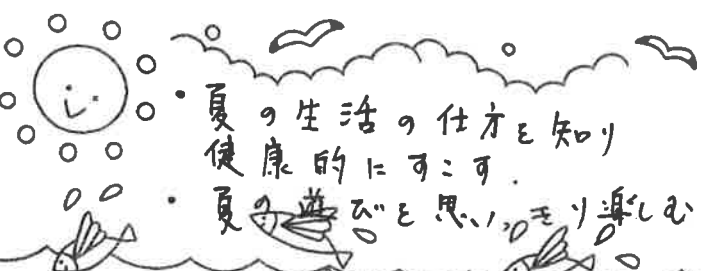 ・夏の生活の仕方を知り
健康的にすごす.
・夏の遊びを思いっきり楽しむ